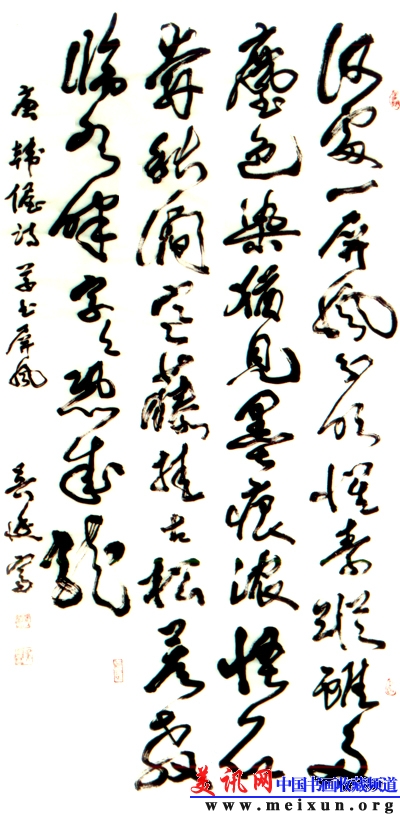 何處一屏風分明懷素蹤雖多
塵色染猶見墨痕濃怪石
奔秋澗寒藤挂古松若教
臨水畔字々恐成龍
唐 韓偓詩 草書屏風
美讯网 中国书画收藏频道
www.meixun.org